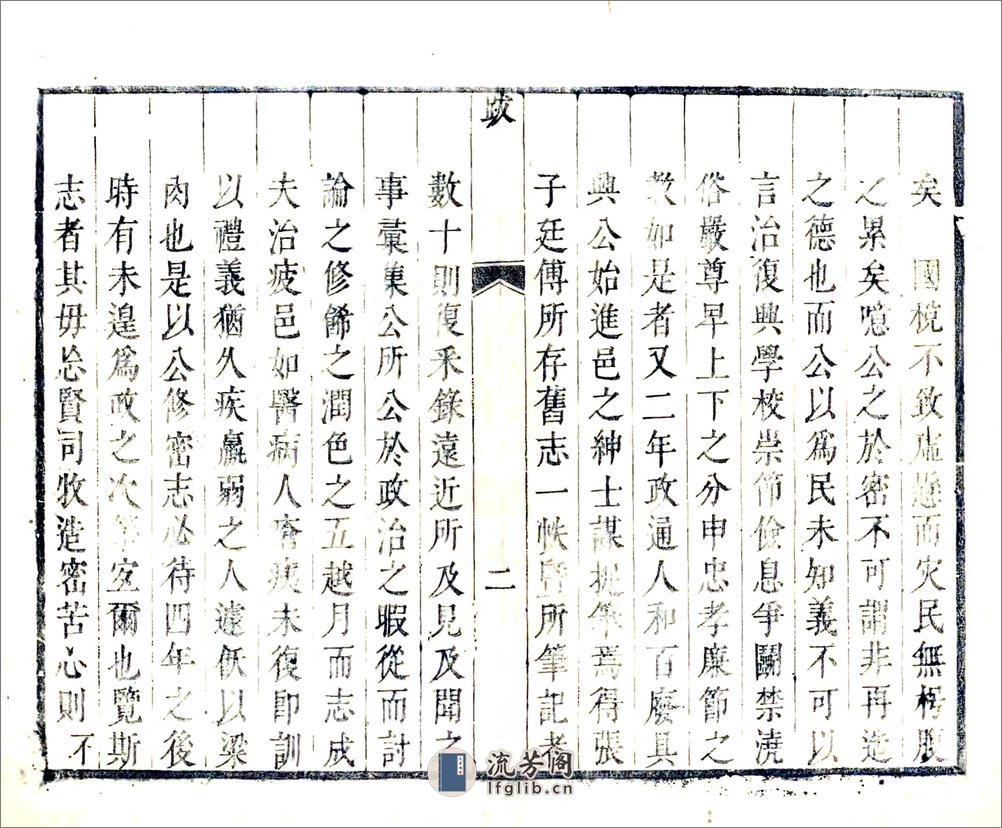 矣　國稅不致虛懸而災民無枵腹
之累矣噫公之於密不可謂非再造
之德也而公以為民未知義不可以
言治復興學校崇節儉息爭鬭禁澆
俗嚴尊卑上下之分申忠孝廉節之
教如是者又二年政通人和百廢具
興公始進邑之紳士謀搦筆焉得張
子廷傅所存舊志一帙曁所筆記者
跋
二
數十則復采錄遠近所及見及聞之
事彚集公所公於政治之暇從而討
論之修餙之潤色之五越月而志成
夫治疲邑如醫病人瘡痍未復卽訓
以禮義猶久疾羸弱之人遽飫以粱
肉也是以公修密志必待四年之後
時有未遑爲政之次第宜爾也覽斯
志者其毋忘賢司牧造密苦心則　不
流芳阁
lfglib.cn